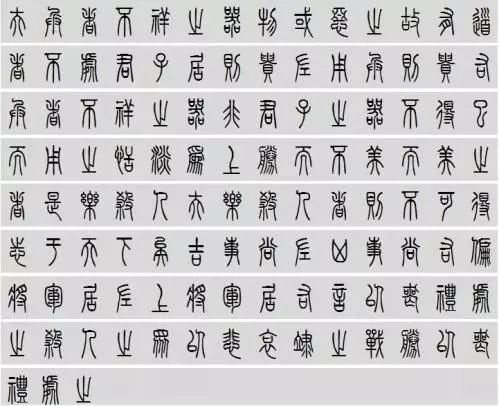 夫兵者不祥之器物或惡之故有道
者不處君子居則貴左用兵則貴右
兵者不祥之器非君子之器不得已
而用之恬淡爲上勝而不美而美之
者是樂殺人夫樂殺人者則不可得
志于天下矣吉事尚左凶事尚右偏
將軍居左上將軍居右言以喪禮處
之殺人之眾以悲哀䇐之戰勝以喪
禮處之